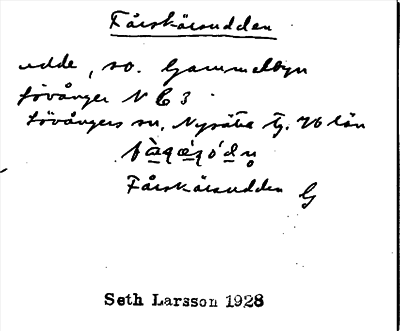 Fårskärsudden
udde, so. Gammelbyn
Lövånger N C 3
Lövångers sn. Nysätra tg. Vb län
Fårskärsudden G
Seth Larsson 1928